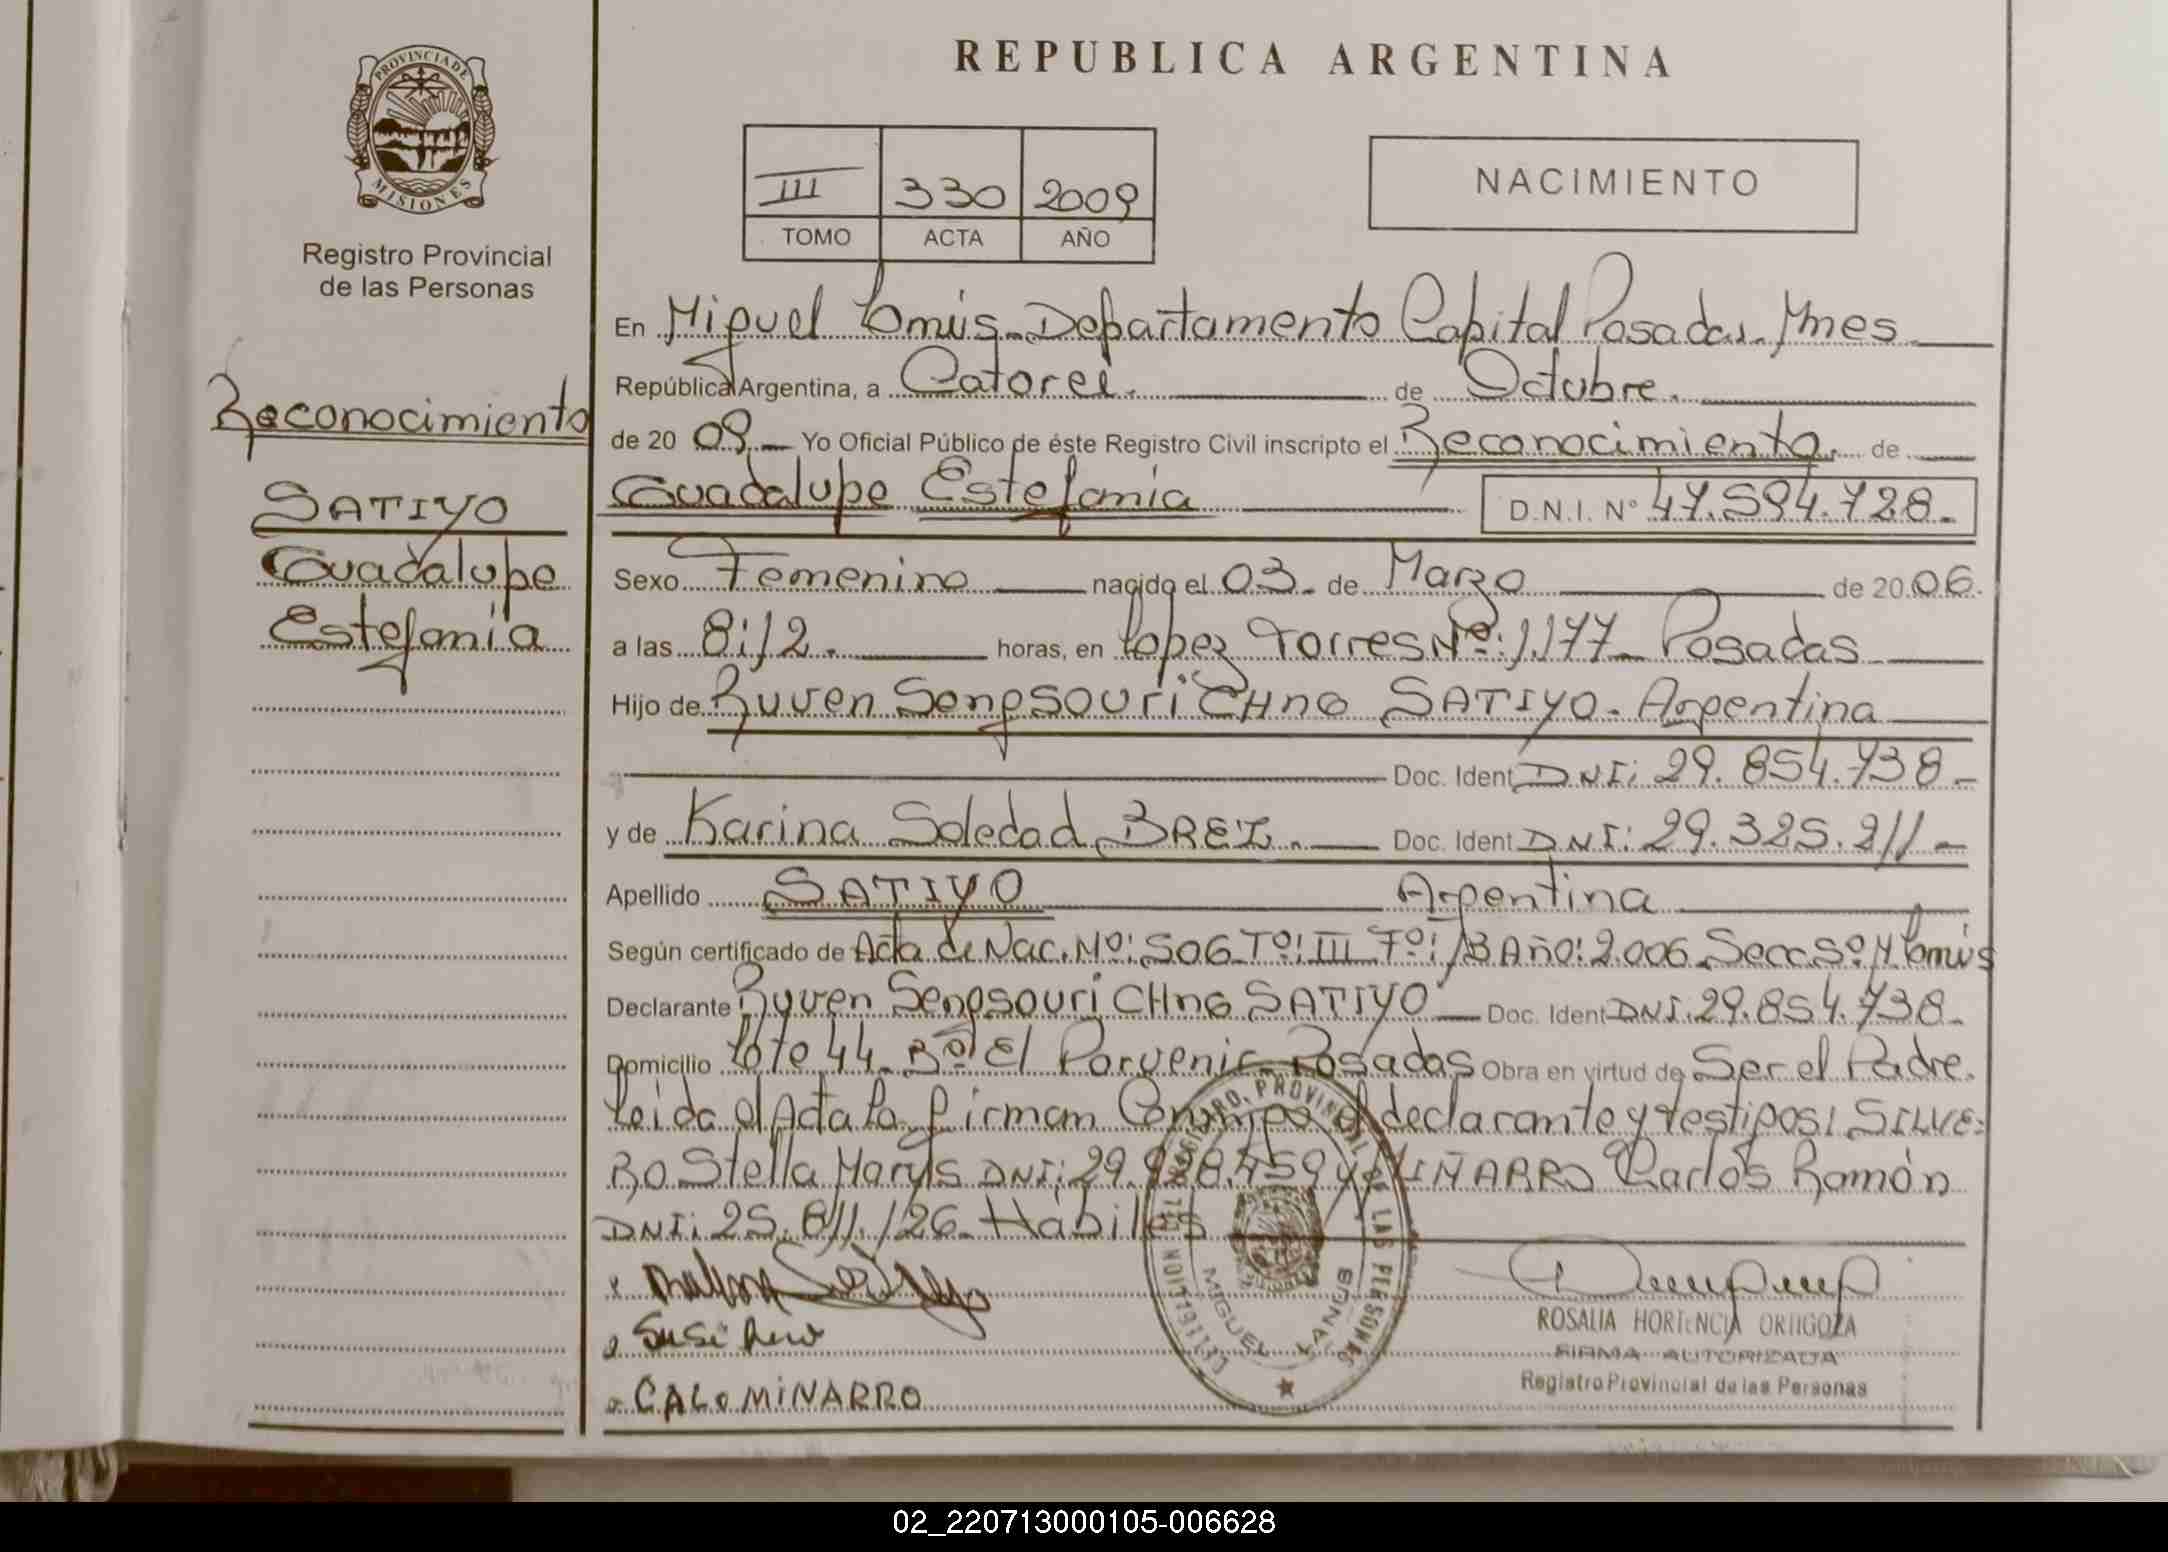 REPUBLICA ARGENTINA
PROVINCIA DE
MISIONES
Registro Provincial
de las Personas
III 330 2009
TOMO ACTA AÑO
NACIMIENTO
Reconocimiento
SATIYO
Guadalupe
Estefanía
En Miguel Lanús. Departamento Capital Posadas. Mnes
República Argentina, a Catorce. de Octubre.
de 20 09 Yo Oficial Público de éste Registro Civil inscripto el Reconocimiento. de
Guadalupe Estefanía D.N.I. Nº 47.594.728.
Sexo Femenino nacido el 03 de Marzo de 20 06.
a las 8:12. horas, en Lopez Torres Nº: 1.177 Posadas
Hijo de Ruven SengSouri CHnG SATIYO. Argentina
Doc. Ident DNI: 29.854.738
y de Karina Soledad BREZ. Doc. Ident DNI: 29.325.211
Apellido SATIYO Argentina
Según certificado de Acta de Nac. Nº: 506 Tº: III Fº: 13 Año: 2.006 Secc Sº M Lanús
Declarante Ruven Sengsouri CHnG SATIYO Doc. Ident DNI. 29.854.738.
Domicilio Lote 44 Bº El Porvenir Posadas Obra en virtud de Ser el Padre.
Leida el Acta la firman Conmigo el declarante y testigos: SILVE=
RO Stella Marys DNI: 29.928.459 y MIÑARRO Carlos Ramón
DNI: 25.811.126 Hábiles
CALO MINARRO
REGISTRO PROVINCIAL DE LAS PERSONAS
MIGUEL LANUS
ROSALIA HORTENCIA ORTIGOZA
FIRMA AUTORIZADA
Registro Provincial de las Personas
02_220713000105-006628